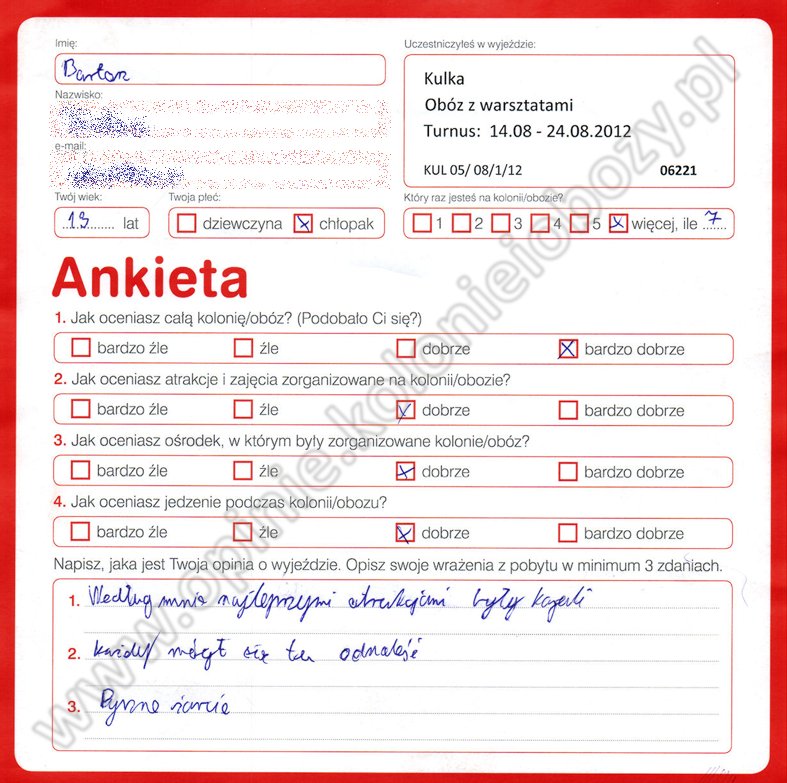 Imię:
Uczestniczyłeś w wyjeździe:
Bartosz
Kulka
Obóz z warsztatami
Turnus: 14.08 - 24.08.2012
KUL 05/ 08/1/12 06221
Nazwisko:
e-mail:
Twój wiek:
Twoja płeć:
Który raz jesteś na kolonii/obozie?
13 lat
dziewczyna chłopak
1 2 3 4 5 więcej, ile 7
Ankieta
1. Jak oceniasz całą kolonię/obóz? (Podobało Ci się?)
bardzo źle źle dobrze bardzo dobrze
2. Jak oceniasz atrakcje i zajęcia zorganizowane na kolonii/obozie?
bardzo źle źle dobrze bardzo dobrze
3. Jak oceniasz ośrodek, w którym były zorganizowane kolonie/obóz?
bardzo źle źle dobrze bardzo dobrze
4. Jak oceniasz jedzenie podczas kolonii/obozu?
bardzo źle źle dobrze bardzo dobrze
Napisz, jaka jest Twoja opinia o wyjeździe. Opisz swoje wrażenia z pobytu w minimum 3 zdaniach.
1. Według mnie najlepszymi atrakcjami były
2. Każdy mógł się tu odnaleść
3. Pyszne żarcie
www.opinie.kolonieiobozy.pl